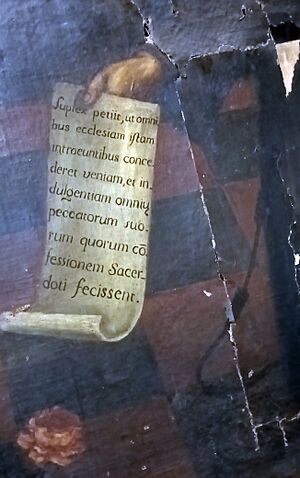 Suplex petijt, ut omni
bus ecclesiam istam
introeuntibus conce
deret veniam, et in
dulgentiam omniū
peccatorum suo-
rum quorum cō
fessionem Sacer-
doti fecissent.